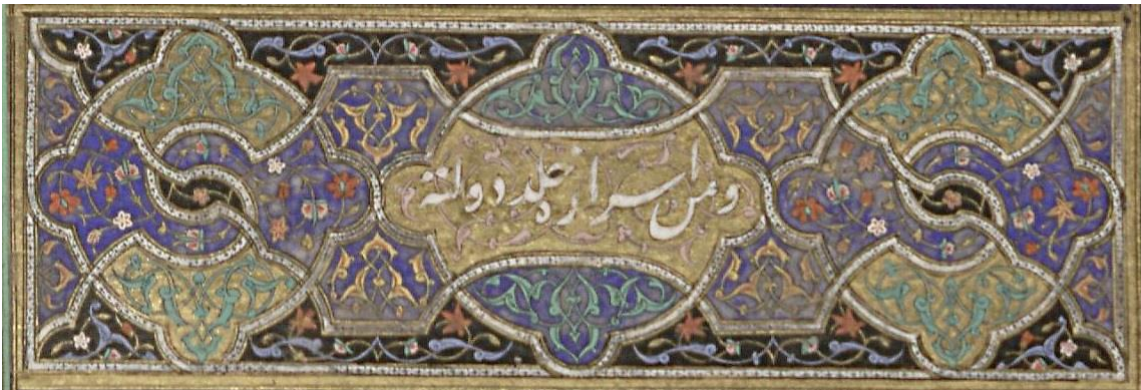 ومن اسراره خلد دولته